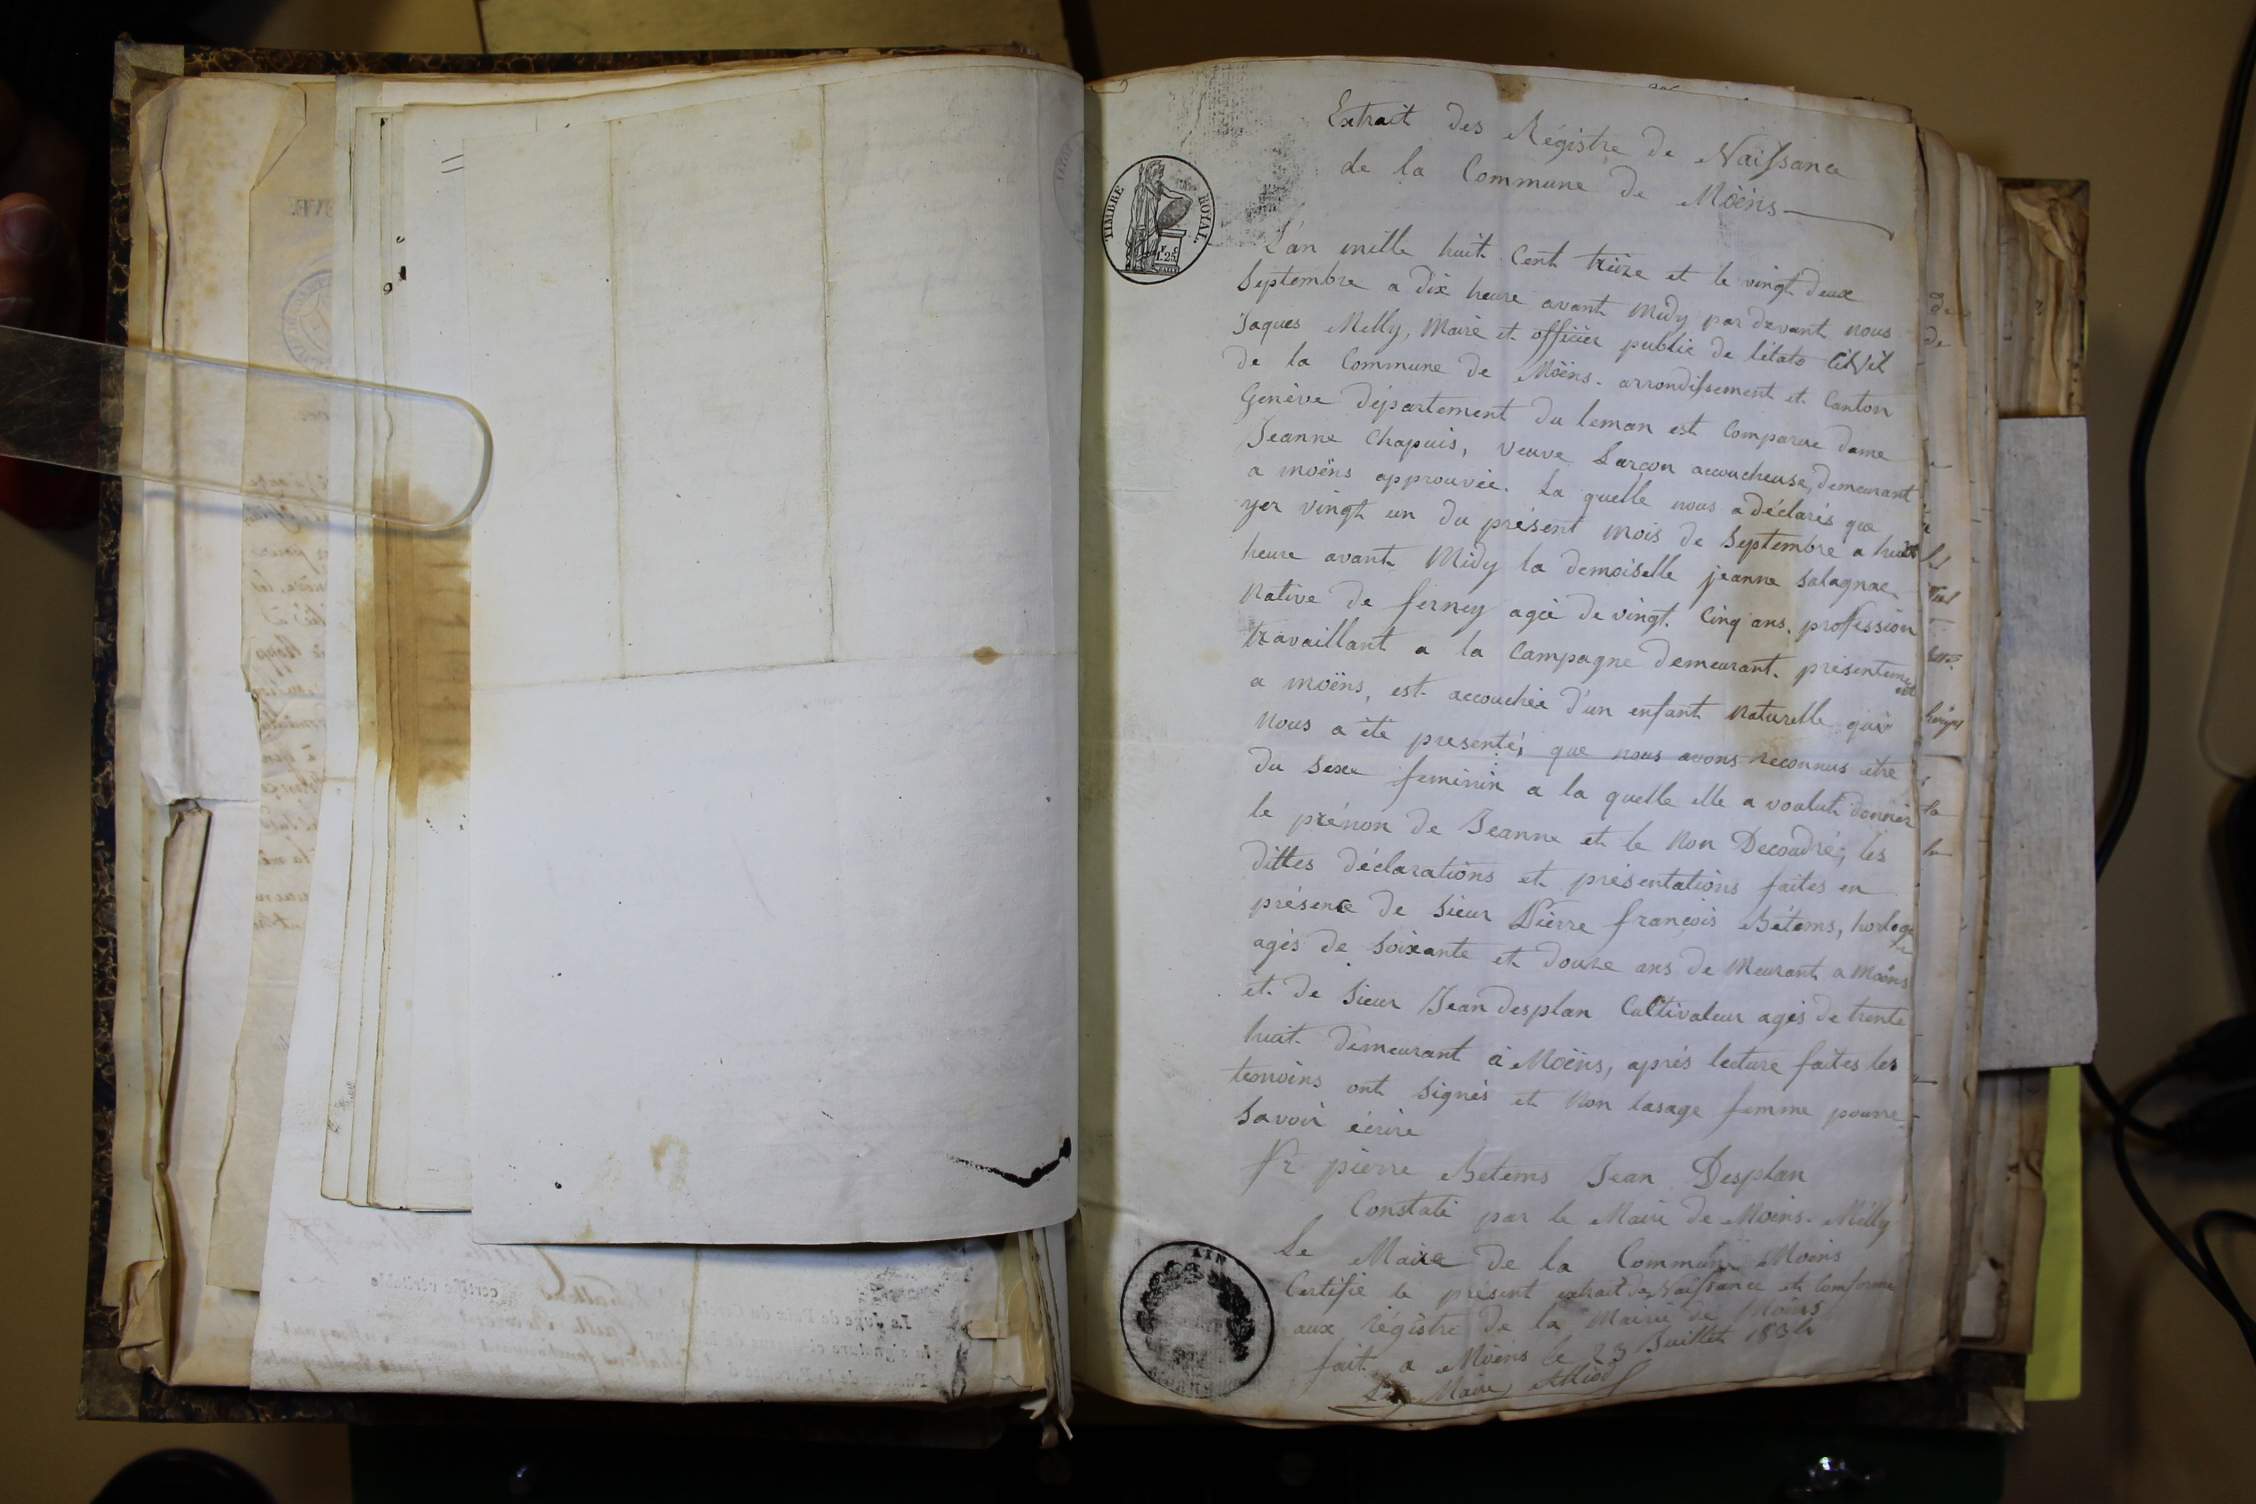 Extrait des Régistre de Naissance
de la Commune de Möens
TIMBRE ROYAL.
1.25
L'an mille huit Cent treize et le vingt deux
Septembre a dix heure avant Midy par devant nous
Jaques Milly, Maire et officier public de l'étato Civil
de la Commune de Möens. arrondissement et Canton
Genève département du leman est Comparue dame
Jeanne Chapuis, veuve Larçon accoucheuse, demeurant
a moëns approuvée. La quelle nous a déclarés que
yer vingt un du présent mois de Septembre a huit
heure avant Midy la demoiselle jeanne Salagnac
Native de ferney agée de vingt Cinq ans, profession
travaillant a la Campagne demeurant présentement
a moëns, est accouchée d'un enfant naturelle qui
nous a été presenté, que nous avons reconnus etre
du Sexe feminin a la quelle elle a voulut donner
le prénon de Jeanne et le Non Decoudré; les
dittes déclarations et présentations faites en
présence de Sieur Pierre françois Bétems, horloger
agés de Soixante et douze ans de Meurant a Moëns
et de Sieur Jean desplan Cultivateur agés de trente
huit demeurant à Moëns, aprés lecture faites les
temoins ont Signés et Non lasage femme pour ne
Savoir écrire
fr pierre Betems Jean Desplan
Constaté par le Maire de Moens. Milly
Le Maire de la Commune Moens
Certifie le présent extrait de Naissance et Comforme
aux régistre de la Mairie de Moens
fait a Moëns le 23 Juillet 1834
Le Maire
AIN